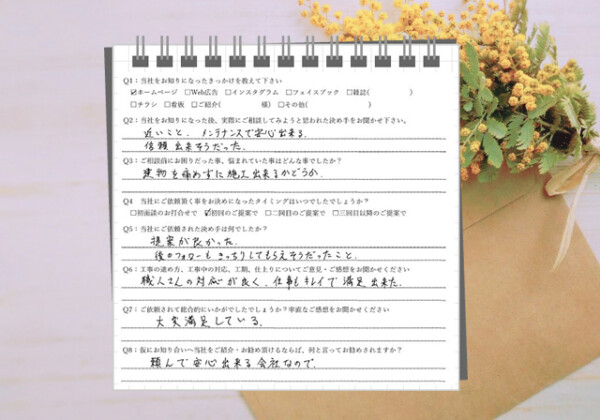 Q1：当社をお知りになったきっかけを教えて下さい
☑ホームページ □Web広告 □インスタグラム □フェイスブック □雑誌( )
□チラシ □看板 □ご紹介( 様) □その他( )
Q2：当社をお知りになった後、実際にご相談してみようと思われた決め手をお聞かせ下さい。
近いこと、メンテナンスで安心出来る。
信頼出来そうだった。
Q3：ご相談前にお困りだった事、悩まれていた事はどんな事でしたか？
建物を痛めずに施工出来るかどうか。
Q4 当社にご依頼頂く事をお決めになったタイミングはいつでしたでしょうか？
□初面談のお打合せで ☑初回のご提案で □二回目のご提案で □三回目以降のご提案で
Q5：当社にご依頼された決め手は何でしたか？
提案が良かった。
後のフォローもきっちりしてもらえそうだったこと。
Q6：工事の進め方、工事中の対応、工期、仕上りについてご意見・ご感想をお聞かせください
職人さんの対応が良く、仕事もキレイで満足出来た。
Q7：ご依頼されて総合的にいかがでしたでしょうか？率直なご感想をお聞かせください
大変満足している。
Q8：仮にお知り合いへ当社をご紹介・お勧め頂けるならば、何と言ってお勧めされますか？
頼んで安心出来る会社なので。